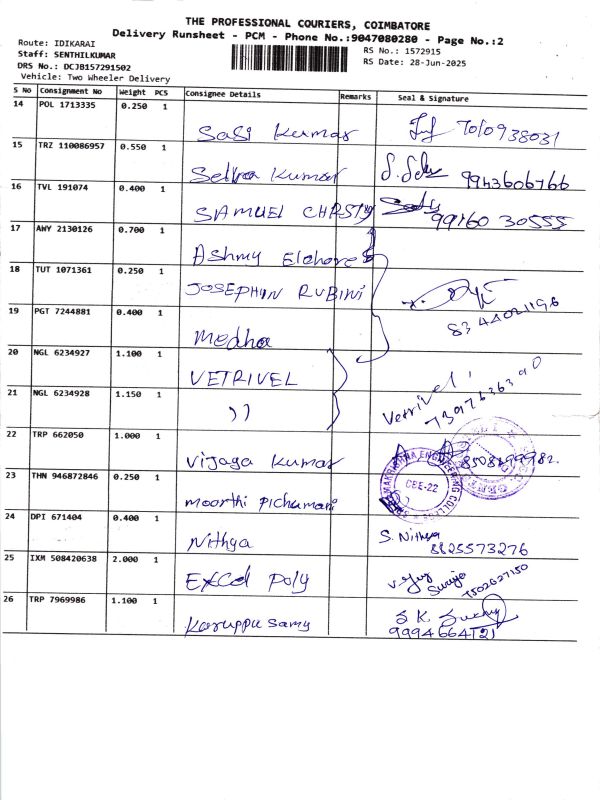 THE PROFESSIONAL COURIERS, COIMBATORE
Delivery Runsheet - PCM - Phone No.:9047080280 - Page No.:2
Route: IDIKARAI
RS No.: 1572915
Staff: SENTHILKUMAR
RS Date: 28-Jun-2025
DRS No.: DCJB1572291502
Vehicle: Two Wheeler Delivery
S No Consignment No Weight PCS Consignee Details Remarks Seal & Signature
14 POL 1713335 0.250 1 Sasi Kumar 7010938031
15 TRZ 110086957 0.550 1 Selva Kumar 9943606766
16 TVL 191074 0.400 1 SAMUEL CHRSTY 99160 30555
17 AWY 2130126 0.700 1 Ashmy
18 TUT 1071361 0.250 1 JOSEPHIN RUBINI
19 PGT 7244881 0.400 1 Medha
20 NGL 6234927 1.100 1 VETRIVEL
21 NGL 6234928 1.150 1 )) Vetrivel
22 TRP 662050 1.000 1 Vijaya Kumar
23 THN 946872846 0.250 1 Moorthi Pichumani
CBE-22
24 DPI 671404 0.400 1 Nithya S. Nithya
8825573276
25 IXM 508420638 2.000 1 Excel Poly
26 TRP 7969986 1.100 1 Karuppu Samy